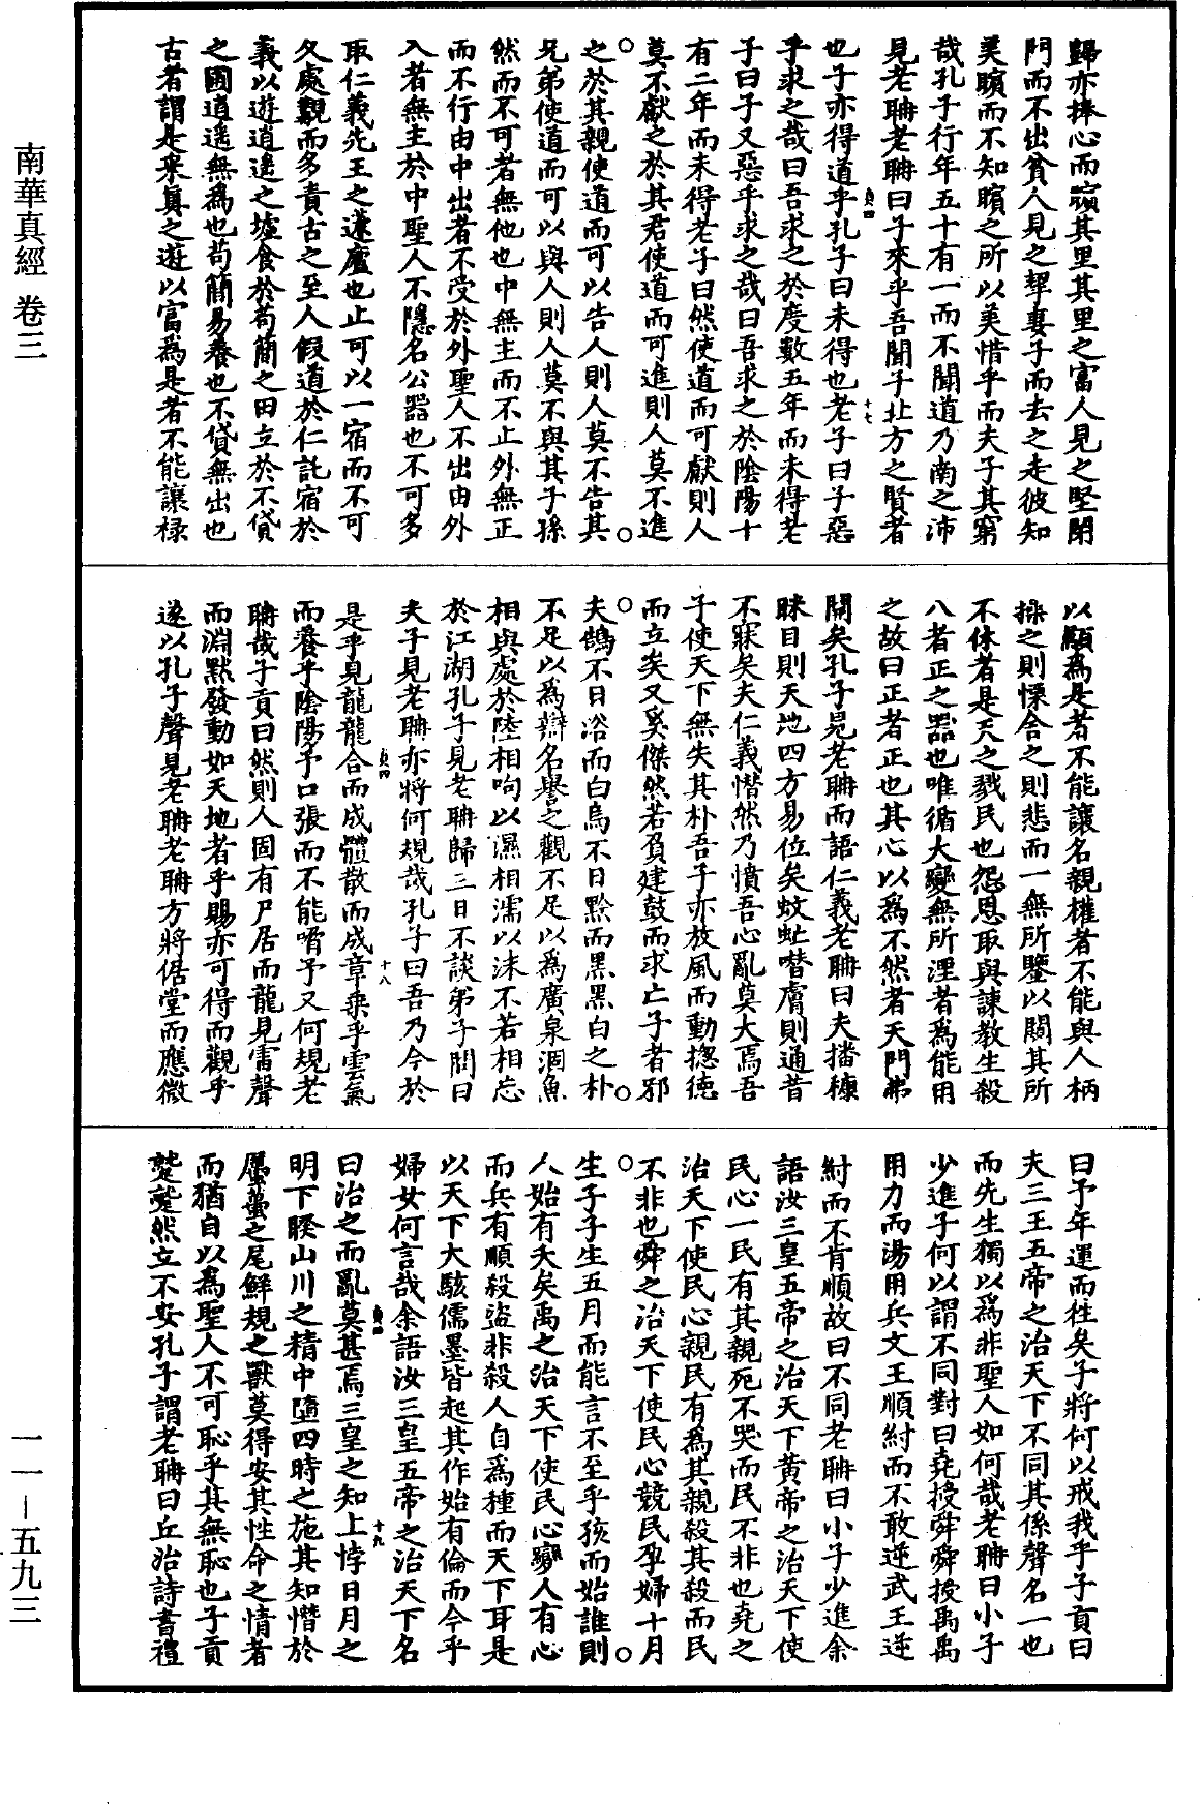 南華真經 卷三
歸亦捧心而矉其里其里之富人見之堅閉
門而不出貧人見之挈妻子而去之走彼知
美矉而不知矉之所以美惜乎而夫子其窮
哉孔子行年五十有一而不聞道乃南之沛
見老聃老聃曰子來乎吾聞子北方之賢者
也子亦得道乎孔子曰未得也老子曰子惡
乎求之哉曰吾求之於度數五年而未得老
子曰子又惡乎求之哉曰吾求之於陰陽十
有二年而未得老子曰然使道而可獻則人
莫不獻之於其君使道而可進則人莫不進
之於其親使道而可以告人則人莫不告其
兄弟使道而可以與人則人莫不與其子孫
然而不可者無他也中無主而不止外無正
而不行由中出者不受於外聖人不出由外
入者無主於中聖人不隱名公器也不可多
取仁義先王之蘧廬也止可以一宿而不可
久處覯而多責古之至人假道於仁託宿於
義以遊逍遙之墟食於苟簡之田立於不貸
之圃逍遙無為也苟簡易養也不貸無出也
古者謂是采真之遊以富為是者不能讓祿
以顯為是者不能讓名親權者不能與人柄
操之則慄舍之則悲而一無所鑒以闚其所
不休者是天之戮民也怨恩取與諫教生殺
八者正之器也唯循大變無所湮者為能用
之故曰正者正也其心以為不然者天門弗
開矣孔子見老聃而語仁義老聃曰夫播糠
眯目則天地四方易位矣蚊虻噆膚則通昔
不寐矣夫仁義憯然乃憤吾心亂莫大焉吾
子使天下無失其朴吾子亦放風而動揔德
而立矣又奚傑然若負建鼓而求亡子者邪
夫鵠不日浴而白烏不日黔而黑黑白之朴
不足以為辯名譽之觀不足以為廣泉涸魚
相與處於陸相呴以濕相濡以沫不若相忘
於江湖孔子見老聃歸三日不談弟子問曰
夫子見老聃亦將何規哉孔子曰吾乃今於
是乎見龍龍合而成體散而成章乘乎雲氣
而養乎陰陽予口張而不能嗋予又何規老
聃哉子貢曰然則人固有尸居而龍見雷聲
而淵默發動如天地者乎賜亦可得而觀乎
遂以孔子聲見老聃老聃方將倨堂而應微
曰予年運而往矣子將何以戒我乎子貢曰
夫三王五帝之治天下不同其係聲名一也
而先生獨以為非聖人如何哉老聃曰小子
少進子何以謂不同對曰堯授舜舜授禹禹
用力而湯用兵文王順紂而不敢逆武王逆
紂而不肯順故曰不同老聃曰小子少進余
語汝三皇五帝之治天下黃帝之治天下使
民心一民有其親死不哭而民不非也堯之
治天下使民心親民有為其親殺其殺而民
不非也舜之治天下使民心競民孕婦十月
生子子生五月而能言不至乎孩而始誰則
人始有夭矣禹之治天下使民心變人有心
而兵有順殺盜非殺人自為種而天下耳是
以天下大駭儒墨皆起其作始有倫而今乎
婦女何言哉余語汝三皇五帝之治天下名
曰治之而亂莫甚焉三皇之知上悖日月之
明下睽山川之精中墮四時之施其知憯於
蠣蠆之尾鮮規之獸莫得安其性命之情者
而猶自以為聖人不可恥乎其無恥也子貢
蹵蹵然立不安孔子謂老聃曰丘治詩書禮
一一—五九三